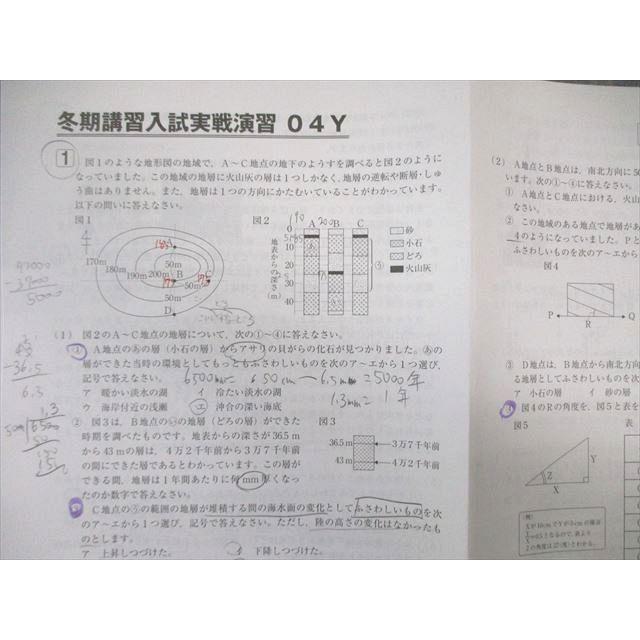 冬期講習入試実戦演習 04Y
1 図1のような地形図の地域で、A〜C地点の地下のようすを調べると図2のように
なっていました。この地域の地層に火山灰の層は1つしかなく、地層の逆転や断層・しゅ
う曲はありません。また、地層は1つの方向にかたむいていることがわかっています。
以下の問いに答えなさい。
図1
170m 180m 190m 200m
50m
A
B
C
50m
50m
D
図2
190 200
A B C
地表からの深さ(m)
0
10
20
30
40
砂
小石
どろ
火山灰
(1) 図2のA〜C地点の地層について、次の①〜④に答えなさい。
① A地点のあの層(小石の層)からアサリの貝がらの化石が見つかりました。あの
層ができた当時の環境としてもっともふさわしいものを次のア〜エから1つ選び、
記号で答えなさい。
6500mm 650cm 6.5mm=5000年
1.3mm=1年
ア 暖かい淡水の湖 イ 冷たい淡水の湖
ウ 海岸付近の浅瀬 エ 沖合の深い海底
② 図3は、B地点のいの地層(どろの層)ができた
時期を調べたものです。地表からの深さが36.5m
から43mの層は、4万2千年前から3万7千年前
の間にできた層であるとわかっています。この層が
できる間、地層は1年間あたりに何mm厚くなっ
たのか数字で答えなさい。
図3
36.5m 3万7千年前
43m 4万2千年前
③ C地点のうの範囲の地層が堆積する間の海水面の変化としてふさわしいものを次
のア〜エから1つ選び、記号で答えなさい。ただし、陸の高さの変化はなかったも
のとします。
ア 上昇しつづけた。 イ 下降しつづけた。
42000
-37000
5000
43
-36.5
6.5
(2) A地点とB地点は、南北方向に50
います。次の①〜④に答えなさい。
① A地点とC地点における、火山
なさい。
② この地域のある地点で地層があ
4のようになっていました。P
ふさわしいものを次のア〜エか
図4
P R Q
③ D地点は、B地点から南北方向
る地層としてふさわしいものを次
ア 小石の層 イ 砂の層
④ 図4のRの角度を、図5と表を
図5 表
Z
Y
X
(例)
Xが10cmでYが5cmの場合
Y/X=0.5となるので、表より
Zの角度は27(度)とわかる。